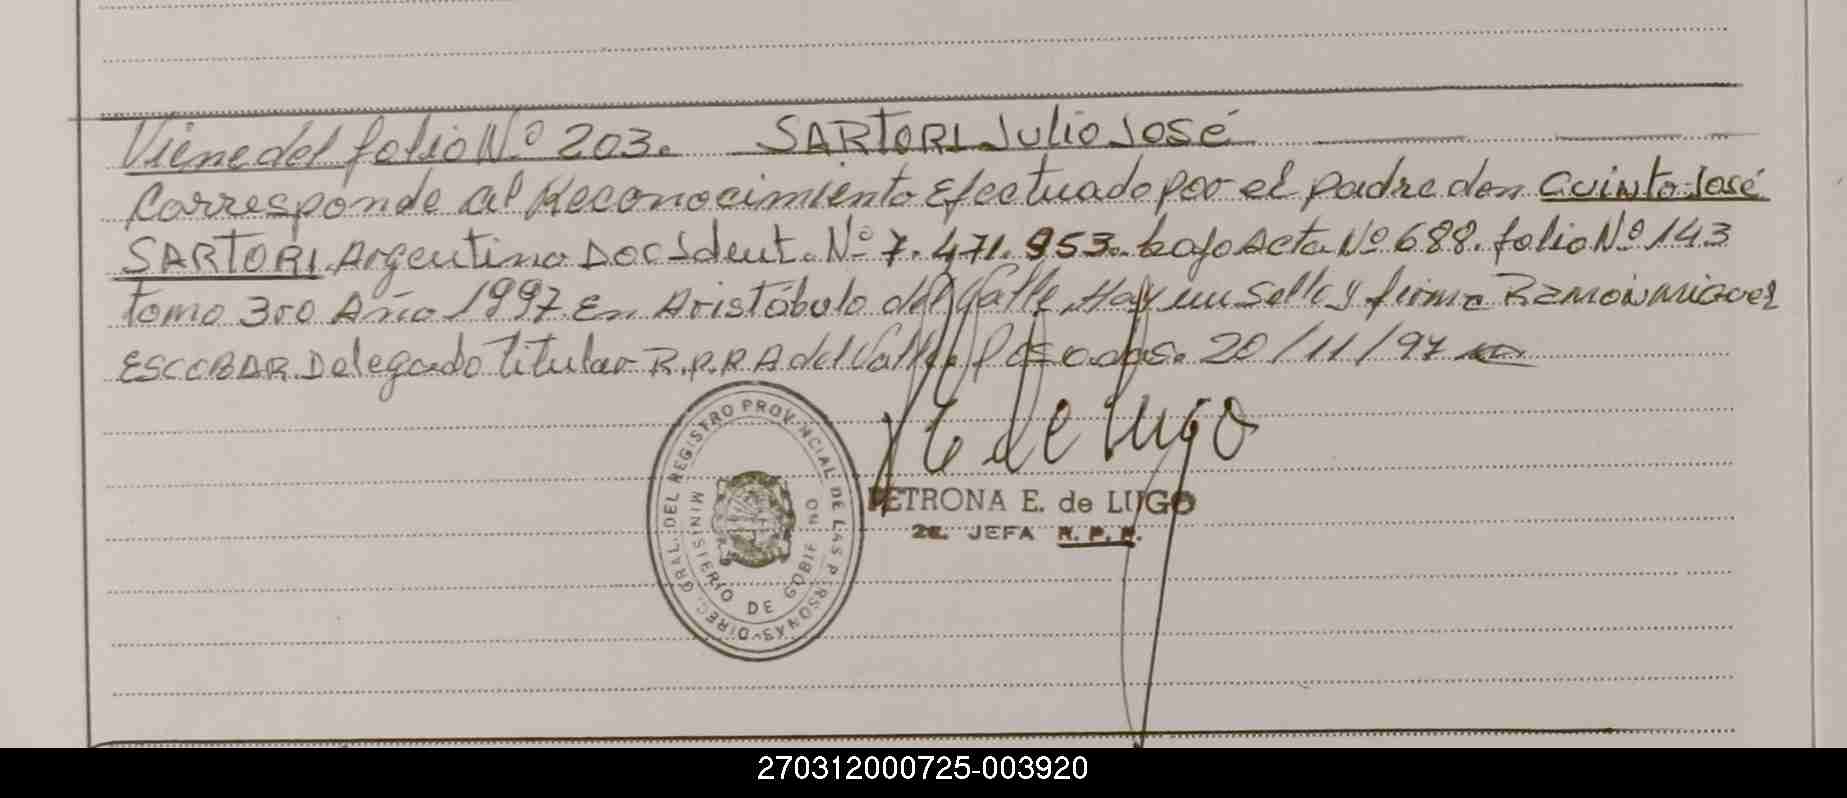 Viene del folio Nº 203. SARTORI Julio José
Corresponde al Reconocimiento Efectuado por el padre don Cuinto José
SARTORI Argentino Doc Ident. Nº 7.471.953. bajo Acta Nº 688. folio Nº 143
tomo 3ro Año 1997 En Aristóbulo del Valle Hay un Sello y firma RAMON Miguel
ESCOBAR Delegado titular R.P.P. A del Valle. Posadas. 20/11/97
E de Lugo
PETRONA E. de LUGO
2a. JEFA R. P. P.
DIREC. GRAL. DEL REGISTRO PROVINCIAL DE LAS PERSONAS
MINISTERIO DE GOBIERNO
270312000725-003920